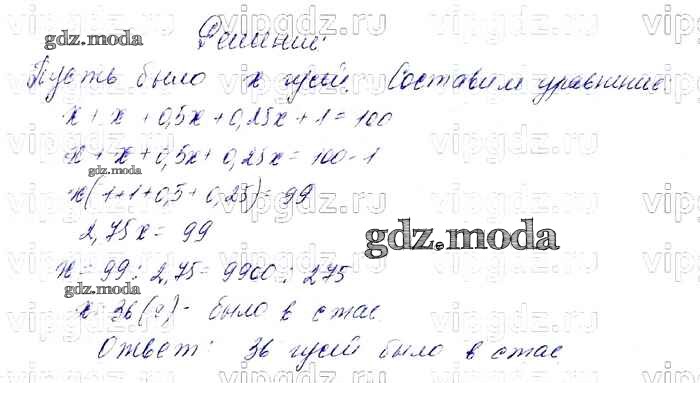 Решение:
Пусть было x гусей. Составим уравнение
x + x + 0,5x + 0,25x + 1 = 100
x + x + 0,5x + 0,25x = 100 - 1
x(1+1+0,5+0,25) = 99
2,75x = 99
x = 99 : 2,75 = 9900 : 275
x = 36 (г) - было в стае
Ответ: 36 гусей было в стае
gdz.moda
gdz.moda
gdz.moda
gdz.moda
vipgdz.ru